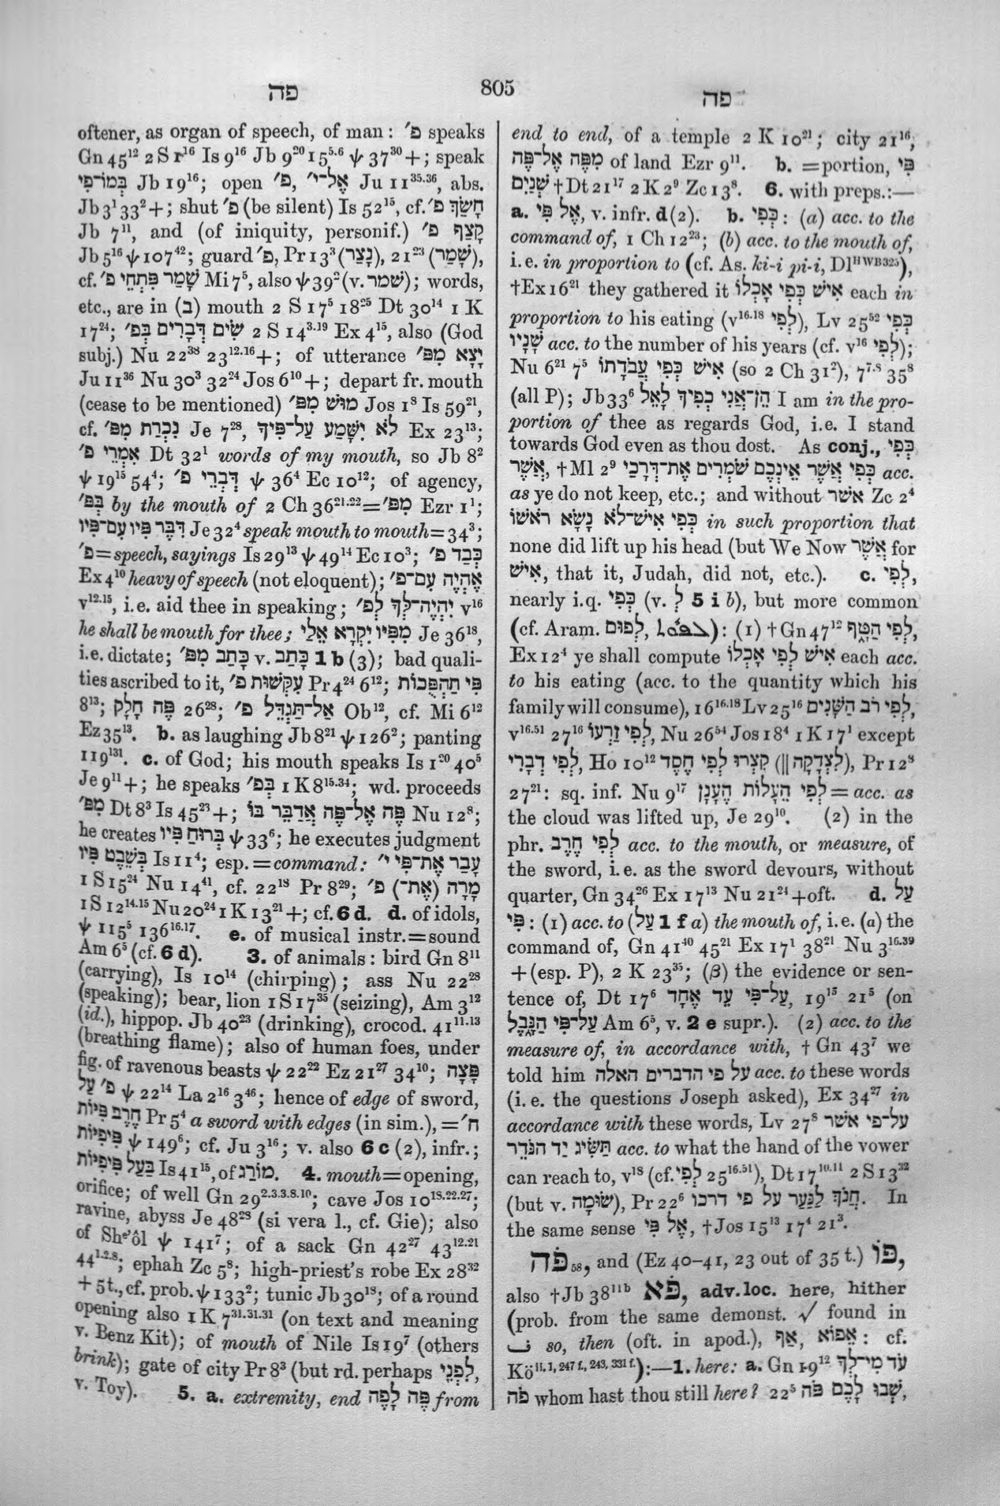 פה
805
פה
oftener, as organ of speech, of man: פ׳ speaks
Gn 45¹² 2 S 1¹⁶ Is 9¹⁶ Jb 9²⁰ 15⁵·⁶ ψ 37³⁰ +; speak
בְּמוֹ־פִי Jb 19¹⁶; open פ׳, אֶל־י״ Ju 11³⁵·³⁶, abs.
Jb 3¹ 33² +; shut פ׳ (be silent) Is 52¹⁵, cf. חָשַׂךְ פ׳
Jb 7¹¹, and (of iniquity, personif.) קָפַץ פ׳
Jb 5¹⁶ ψ 107⁴²; guard פ׳, Pr 13³ (נָצַר), 21²³ (שָׁמַר),
cf. שָׁמַר פִּתְחֵי פ׳ Mi 7⁵, also ψ 39² (v. שׁמר); words,
etc., are in (בְּ) mouth 2 S 17⁵ 18²⁵ Dt 30¹⁴ 1 K
17²⁴; שִׂים דְּבָרִים בְּפ׳ 2 S 14³·¹⁹ Ex 4¹⁵, also (God
subj.) Nu 22³⁸ 23¹²·¹⁶ +; of utterance יָצָא מִפּ׳
Ju 11³⁶ Nu 30³ 32²⁴ Jos 6¹⁰ +; depart fr. mouth
(cease to be mentioned) מוּשׁ מִפּ׳ Jos 1⁸ Is 59²¹,
cf. נִכְרַת מִפּ׳ Je 7²⁸, לֹא יִשָּׁמַע עַל־פִּיךָ Ex 23¹³;
אִמְרֵי פ׳ Dt 32¹ words of my mouth, so Jb 8²
ψ 19¹⁵ 54⁴; דִּבְרֵי פ׳ ψ 36⁴ Ec 10¹²; of agency,
בְּפ׳ by the mouth of 2 Ch 36²¹·²² = מִפּ׳ Ezr 1¹;
דִּבֶּר פִּיו עִם־פִּיו Je 32⁴ speak mouth to mouth = 34³;
פ׳ = speech, sayings Is 29¹³ ψ 49¹⁴ Ec 10³; כְּבַד פ׳
Ex 4¹⁰ heavy of speech (not eloquent); אֶהְיֶה עִם־פ׳
v¹²·¹⁵, i.e. aid thee in speaking; יִהְיֶה־לְּךָ לְפ׳ v¹⁶
he shall be mouth for thee; מִפִּיו יִקְרָא אֵלַי Je 36¹⁸,
i.e. dictate; כָּתַב מִפּ׳ v. כָּתַב 1 b (3); bad quali-
ties ascribed to it, עִקְּשׁוּת פ׳ Pr 4²⁴ 6¹²; פִּי תַהְפֻּכוֹת
8¹³; פֶּה חָלָק 26²⁸; אַל־תַּגְדֵּל פ׳ Ob¹², cf. Mi 6¹²
Ez 35¹³. b. as laughing Jb 8²¹ ψ 126²; panting
119¹³¹. c. of God; his mouth speaks Is 1²⁰ 40⁵
Je 9¹¹ +; he speaks בְּפ׳ 1 K 8¹⁵·²⁴; wd. proceeds
מִפּ׳ Dt 8³ Is 45²³ +; פֶּה אֶל־פֶּה אֲדַבֶּר בּוֹ Nu 12⁸;
he creates בְּרוּחַ פִּיו ψ 33⁶; he executes judgment
בְּשֵׁבֶט פִּיו Is 11⁴; esp. = command: עָבַר אֶת־פִּי י״
1 S 15²⁴ Nu 14⁴¹, cf. 22¹⁸ Pr 8²⁹; מָרָה (אֶת־) פ׳
1 S 12¹⁴·¹⁵ Nu 20²⁴ 1 K 13²¹ +; cf. 6 d. d. of idols,
ψ 115⁵ 136¹⁶·¹⁷. e. of musical instr. = sound
Am 6⁵ (cf. 6 d). 3. of animals: bird Gn 8¹¹
(carrying), Is 10¹⁴ (chirping); ass Nu 22²⁸
(speaking); bear, lion 1 S 17³⁵ (seizing), Am 3¹²
(id.), hippop. Jb 40²³ (drinking), crocod. 41¹¹·¹³
(breathing flame); also of human foes, under
fig. of ravenous beasts ψ 22²² Ez 21²⁷ 34¹⁰; פָּצָה
פ׳ עַל ψ 22¹⁴ La 2¹⁶ 3⁴⁶; hence of edge of sword,
חֶרֶב פִּיּוֹת Pr 5⁴ a sword with edges (in sim.), = ח׳
פִּיפִיּוֹת ψ 149⁶; cf. Ju 3¹⁶; v. also 6 c (2), infr.;
בַּעַל פִּיפִיּוֹת Is 41¹⁵, of מוֹרַג. 4. mouth = opening,
orifice; of well Gn 29²·³·³·⁸·¹⁰; cave Jos 10¹⁸·²²·²⁷;
ravine, abyss Je 48²⁸ (si vera l., cf. Gie); also
of She'ôl ψ 141⁷; of a sack Gn 42²⁷ 43¹²·²¹
44¹·²·⁸; ephah Zc 5⁸; high-priest's robe Ex 28³²
+ 5 t., cf. prob. ψ 133²; tunic Jb 30¹⁸; of a round
opening also 1 K 7³¹·³¹·³¹ (on text and meaning
v. Benz Kit); of mouth of Nile Is 19⁷ (others
brink); gate of city Pr 8³ (but rd. perhaps לִפְנֵי,
v. Toy). 5. a. extremity, end פֶּה לָפֶה from
end to end, of a temple 2 K 10²¹; city 21¹⁶,
מִפֶּה אֶל־פֶּה of land Ezr 9¹¹. b. = portion, פִּי
שְׁנַיִם † Dt 21¹⁷ 2 K 2⁹ Zc 13⁸. 6. with preps.:—
a. אֶל פִּי, v. infr. d (2). b. כְּפִי: (a) acc. to the
command of, 1 Ch 12²³; (b) acc. to the mouth of,
i.e. in proportion to (cf. As. ki-i pi-i, Dl HWB 325),
† Ex 16²¹ they gathered it אִישׁ כְּפִי אָכְלוֹ each in
proportion to his eating (v¹⁶·¹⁸ לְפִי), Lv 25⁵² כְּפִי
שָׁנָיו acc. to the number of his years (cf. v¹⁶ לְפִי);
Nu 6²¹ 7⁵ אִישׁ כְּפִי עֲבֹדָתוֹ (so 2 Ch 31²), 7⁷·⁸ 35⁸
(all P); Jb 33⁶ הֵן־אֲנִי כְפִיךָ לָאֵל I am in the pro-
portion of thee as regards God, i.e. I stand
towards God even as thou dost. As conj., כְּפִי
אֲשֶׁר, † Ml 2⁹ כְּפִי אֲשֶׁר אֵינְכֶם שֹׁמְרִים אֶת־דְּרָכַי acc.
as ye do not keep, etc.; and without אשׁר Zc 2⁴
כְּפִי אִישׁ־לֹא נָשָׂא רֹאשׁוֹ in such proportion that
none did lift up his head (but We Now אֲשֶׁר for
אִישׁ, that it, Judah, did not, etc.). c. לְפִי,
nearly i.q. כְּפִי (v. לְ 5 i b), but more common
(cf. Aram. לְפוּם, ܠܦܘܡ): (1) † Gn 47¹² לְפִי הַטָּף,
Ex 12⁴ ye shall compute אִישׁ לְפִי אָכְלוֹ each acc.
to his eating (acc. to the quantity which his
family will consume), 16¹⁶·¹⁸ Lv 25¹⁶ לְפִי רֹב הַשָּׁנִים,
v¹⁶·⁵¹ 27¹⁶ לְפִי זַרְעוֹ, Nu 26⁵⁴ Jos 18⁴ 1 K 17¹ except
לְפִי דְבָרִי, Ho 10¹² קִצְרוּ לְפִי חֶסֶד (‖ לִצְדָקָה), Pr 12⁸
27²¹: sq. inf. Nu 9¹⁷ לְפִי הֵעָלוֹת הֶעָנָן = acc. as
the cloud was lifted up, Je 29¹⁰. (2) in the
phr. לְפִי חֶרֶב acc. to the mouth, or measure, of
the sword, i.e. as the sword devours, without
quarter, Gn 34²⁶ Ex 17¹³ Nu 21²⁴ + oft. d. עַל
פִּי: (1) acc. to (עַל 1 f a) the mouth of, i.e. (α) the
command of, Gn 41⁴⁰ 45²¹ Ex 17¹ 38²¹ Nu 3¹⁶·³⁹
+ (esp. P), 2 K 23³⁵; (β) the evidence or sen-
tence of, Dt 17⁶ עַל־פִּי עֵד אֶחָד, 19¹⁵ 21⁵ (on
עַל־פִּי הַנָּבֶל Am 6⁵, v. 2 e supr.). (2) acc. to the
measure of, in accordance with, † Gn 43⁷ we
told him על פי הדברים האלה acc. to these words
(i.e. the questions Joseph asked), Ex 34²⁷ in
accordance with these words, Lv 27⁸ על־פי אשׁר
תַּשִּׂיג יַד הַנֹּדֵר acc. to what the hand of the vower
can reach to, v¹⁸ (cf. לְפִי 25¹⁶·⁵¹), Dt 17¹⁰·¹¹ 2 S 13³²
(but v. שׂוּמָה), Pr 22⁶ חֲנֹךְ לַנַּעַר על פי דרכו. In
the same sense אֶל פִּי, † Jos 15¹³ 17⁴ 21³.
פֹּה₅₈, and (Ez 40–41, 23 out of 35 t.) פּוֹ,
also † Jb 38¹¹ᵇ פֹּא, adv. loc. here, hither
(prob. from the same demonst. √ found in
ف so, then (oft. in apod.), אַף, אֵפוֹא: cf.
Kö ii. 1, 247 f., 243, 331 f.):—1. here: a. Gn 19¹² עֹד מִי־לְךָ
פֹה whom hast thou still here? 22⁵ שְׁבוּ לָכֶם פֹּה,